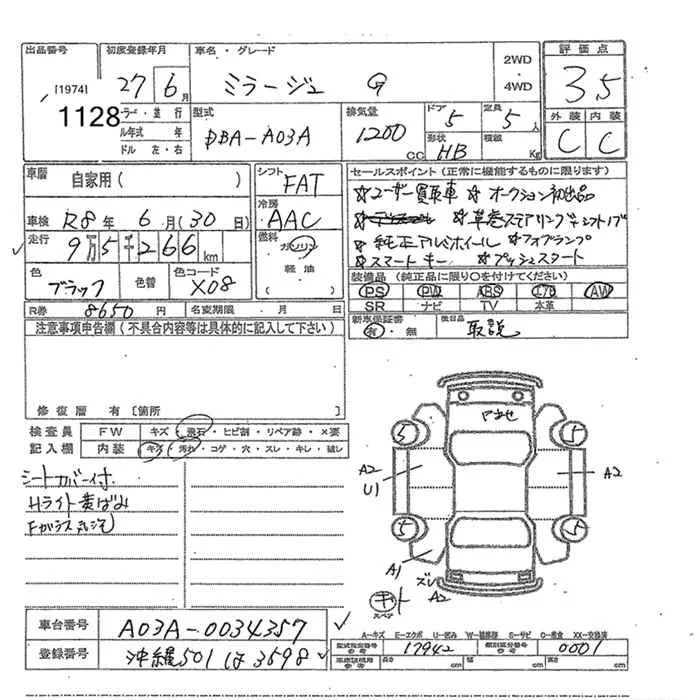 出品番号
[1974]
1128
初度登録年月
27年 6月
カラー・並行
モデル年式 年
ハンドル 左・右
車名・グレード
ミラージュ G
2WD
・
4WD
評価点
3.5
外装 内装
C C
型式
DBA-A03A
排気量
1200 CC
ドア
5
形状
HB
定員
5人
積載
Kg
車歴
自家用( )
車検 R8年 6月(30日)
走行 9万5千266km
色
ブラック
色替
色コード
X08
シフト
FAT
冷房
AAC
燃料
ガソリン
軽油
セールスポイント(正常に機能するものに限ります)
☆ユーザー買取車 ☆オークション初出品
☆革巻ステアリング&シフトノブ
☆純正アルミホイール ☆フォグランプ
☆スマートキー ☆プッシュスタート
装備品(純正品に限り○を付けてください)
PS PW ABS エアB AW
SR ナビ TV 本革
新車保証書
有・無
後日品
取説
R券 8650円 名変期限 月 日
注意事項申告欄(不具合内容等は具体的に記入して下さい)
修復歴 有[箇所 ]
検査員
記入欄
FW キズ・飛石・ヒビ割・リペア跡・×要
内装 キズ・汚れ・コゲ・穴・スレ・キレ・破レ
シートカバー付
Hライト黄ばみ
Fガラス汚
5 5
A2
U1
A2
5 5
A1
ズレ
A2
キト
スペア
車台番号 A03A-0034357
登録番号 沖縄501 は 3598
A-キズ E-エクボ U-凹み W-補修跡 S-サビ C-腐食 XX-交換済
型式指定番号
参考
17942
類別区分番号
参考
0001
長さ cm 幅 cm 高さ cm